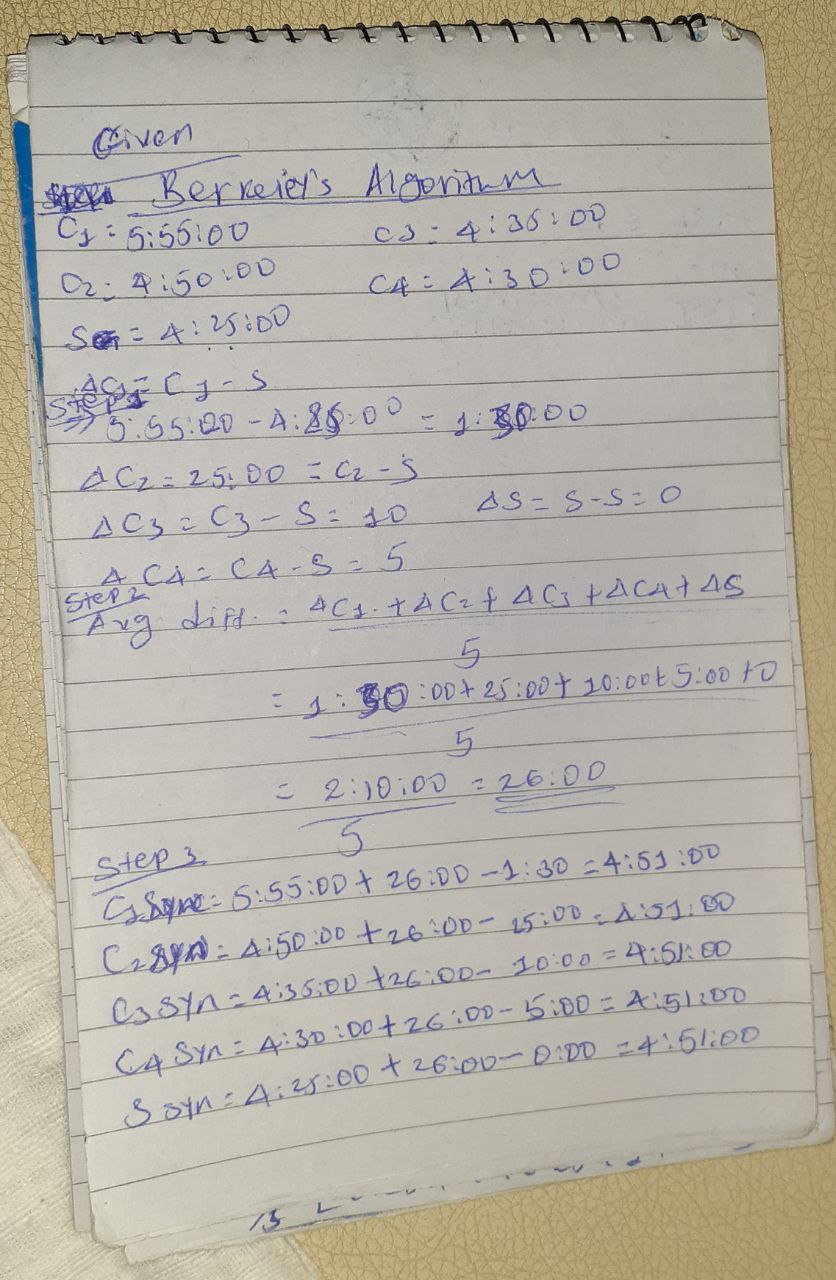 Given
Berkeier's Algorithm
C1 = 5:55:00 C3 = 4:35:00
C2 = 4:50:00 C4 = 4:30:00
S = 4:25:00
ΔC1 = C1 - S
Step 1
5:55:00 - 4:25:00 = 1:30:00
ΔC2 = 25:00 = C2 - S
ΔC3 = C3 - S = 10 ΔS = S - S = 0
ΔC4 = C4 - S = 5
Step 2
Avg diff. = ΔC1 + ΔC2 + ΔC3 + ΔC4 + ΔS
5
= 1:30:00 + 25:00 + 10:00 + 5:00 + 0
5
= 2:10:00 = 26:00
5
Step 3
C1 Sync = 5:55:00 + 26:00 - 1:30 = 4:51:00
C2 syn = 4:50:00 + 26:00 - 25:00 = 4:51:00
C3 syn = 4:35:00 + 26:00 - 10:00 = 4:51:00
C4 syn = 4:30:00 + 26:00 - 5:00 = 4:51:00
S syn = 4:25:00 + 26:00 - 0:00 = 4:51:00